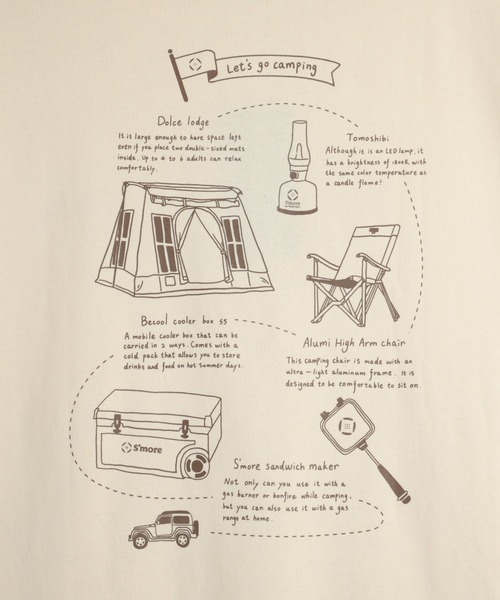 Let's go camping
Dolce lodge
It is large enough to have space left
even if you place two double-sized mats
inside. Up to 4 to 6 adults can relax
comfortably.
Tomoshibi
Although it is an LED lamp, it
has a brightness of 1800K with
the same color temperature as
a candle flame!
S'more
Becool cooler box 55
A mobile cooler box that can be
carried in 2 ways. Comes with a
cold pack that allows you to store
drinks and food on hot summer days.
Alumi High Arm chair
This camping chair is made with an
ultra-light aluminum frame. It is
designed to be comfortable to sit on.
S'more
S'more sandwich maker
Not only can you use it with a
gas burner or bonfire while camping,
but you can also use it with a gas
range at home.